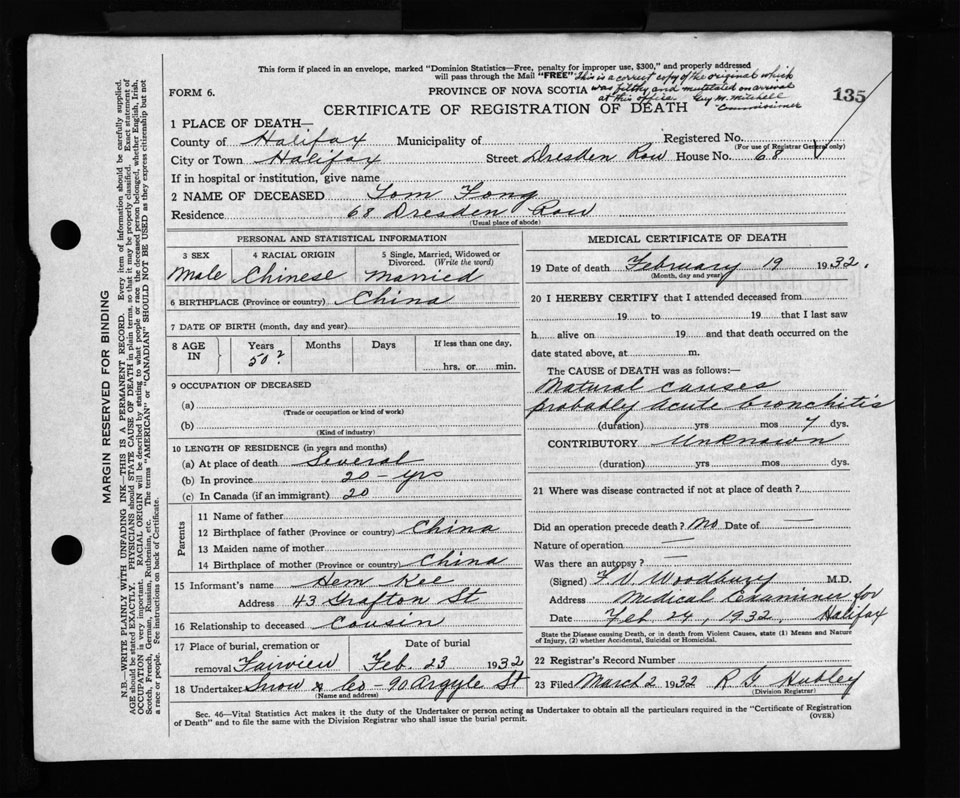 This form if placed in an envelope, marked "Dominion Statistics—Free, penalty for improper use, $300," and properly addressed
will pass through the Mail "FREE" This is a correct copy of the original which
FORM 6. PROVINCE OF NOVA SCOTIA was filthy and mutilated on arrival
at this office. Guy M. Mitchell
Commissioner
135
CERTIFICATE OF REGISTRATION OF DEATH
1 PLACE OF DEATH—
County of Halifax Municipality of Registered No.
(For use of Registrar General only)
City or Town Halifax Street Dresden Row House No. 68
If in hospital or institution, give name
2 NAME OF DECEASED Tom Fong
Residence 68 Dresden Row
(Usual place of abode)
PERSONAL AND STATISTICAL INFORMATION
3 SEX 4 RACIAL ORIGIN 5 Single, Married, Widowed or
Divorced. (Write the word)
Male Chinese Married
6 BIRTHPLACE (Province or country) China
7 DATE OF BIRTH (month, day and year)
8 AGE IN Years Months Days If less than one day,
50? hrs. or min.
9 OCCUPATION OF DECEASED
(a)
(Trade or occupation or kind of work)
(b)
(Kind of industry)
10 LENGTH OF RESIDENCE (in years and months)
(a) At place of death Several
(b) In province 20 - yrs
(c) In Canada (if an immigrant) 20
Parents
11 Name of father
12 Birthplace of father (Province or country) China
13 Maiden name of mother
14 Birthplace of mother (Province or country) China
15 Informant's name Hem Kee
Address 43 Grafton St
16 Relationship to deceased Cousin
17 Place of burial, cremation or Date of burial
removal Fairview Feb. 23 1932
18 Undertaker Snow & Co - 90 Argyle St
(Name and address)
MEDICAL CERTIFICATE OF DEATH
19 Date of death February 19 1932.
(Month, day and year)
20 I HEREBY CERTIFY that I attended deceased from
19 to 19 that I last saw
h alive on 19 and that death occurred on the
date stated above, at m.
The CAUSE of DEATH was as follows:—
Natural causes
probably acute bronchitis
(duration) yrs mos 7 dys.
CONTRIBUTORY Unknown
(duration) yrs mos. dys.
21 Where was disease contracted if not at place of death?
Did an operation precede death? No Date of —
Nature of operation —
Was there an autopsy? —
(Signed) F V Woodbury M.D.
Address Medical Examiner for
Date Feb 24, 1932. Halifax
State the Disease causing Death, or in death from Violent Causes, state (1) Means and Nature
of Injury, (2) whether Accidental, Suicidal or Homicidal.
22 Registrar's Record Number
23 Filed March 2 1932 R G Hubley
(Division Registrar)
Sec. 46—Vital Statistics Act makes it the duty of the Undertaker or person acting as Undertaker to obtain all the particulars required in the "Certificate of Registration
of Death" and to file the same with the Division Registrar who shall issue the burial permit. (OVER)
MARGIN RESERVED FOR BINDING
N.B.—WRITE PLAINLY WITH UNFADING INK—THIS IS A PERMANENT RECORD. Every item of information should be carefully supplied.
AGE should be stated EXACTLY. PHYSICIANS should STATE CAUSE OF DEATH in plain terms, so that it may be properly classified. Exact statement of
OCCUPATION is very important. RACIAL ORIGIN will be described by stating to what people or race the deceased person belonged, whether English, Irish,
Scotch, French, German, Russian, Ruthenian, etc. The terms "AMERICAN" or "CANADIAN" SHOULD NOT BE USED as they express citizenship but not
a race or people. See instructions on back of Certificate.